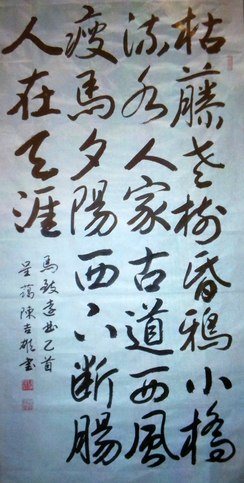 枯藤老樹昏鴉小橋
流水人家古道西風
瘦馬夕陽西下斷腸
人在天涯
馬致遠曲乙首
陳吉雄書